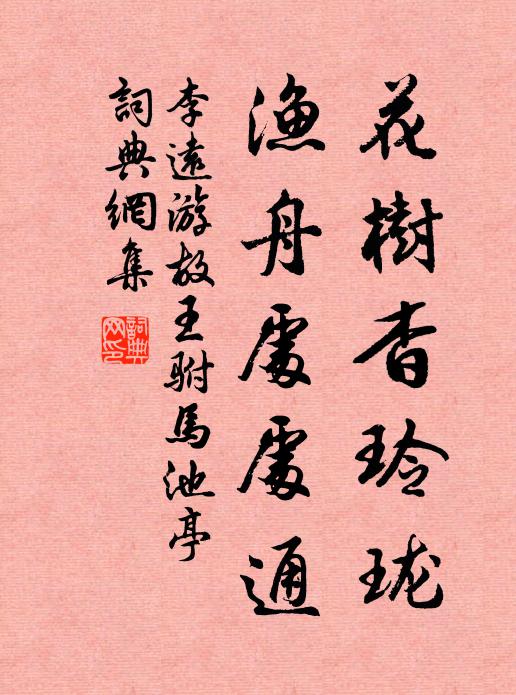 花樹杳玲珑
漁舟處處通
李遠游故王駙馬池亭
詞典網集
詞典
网印